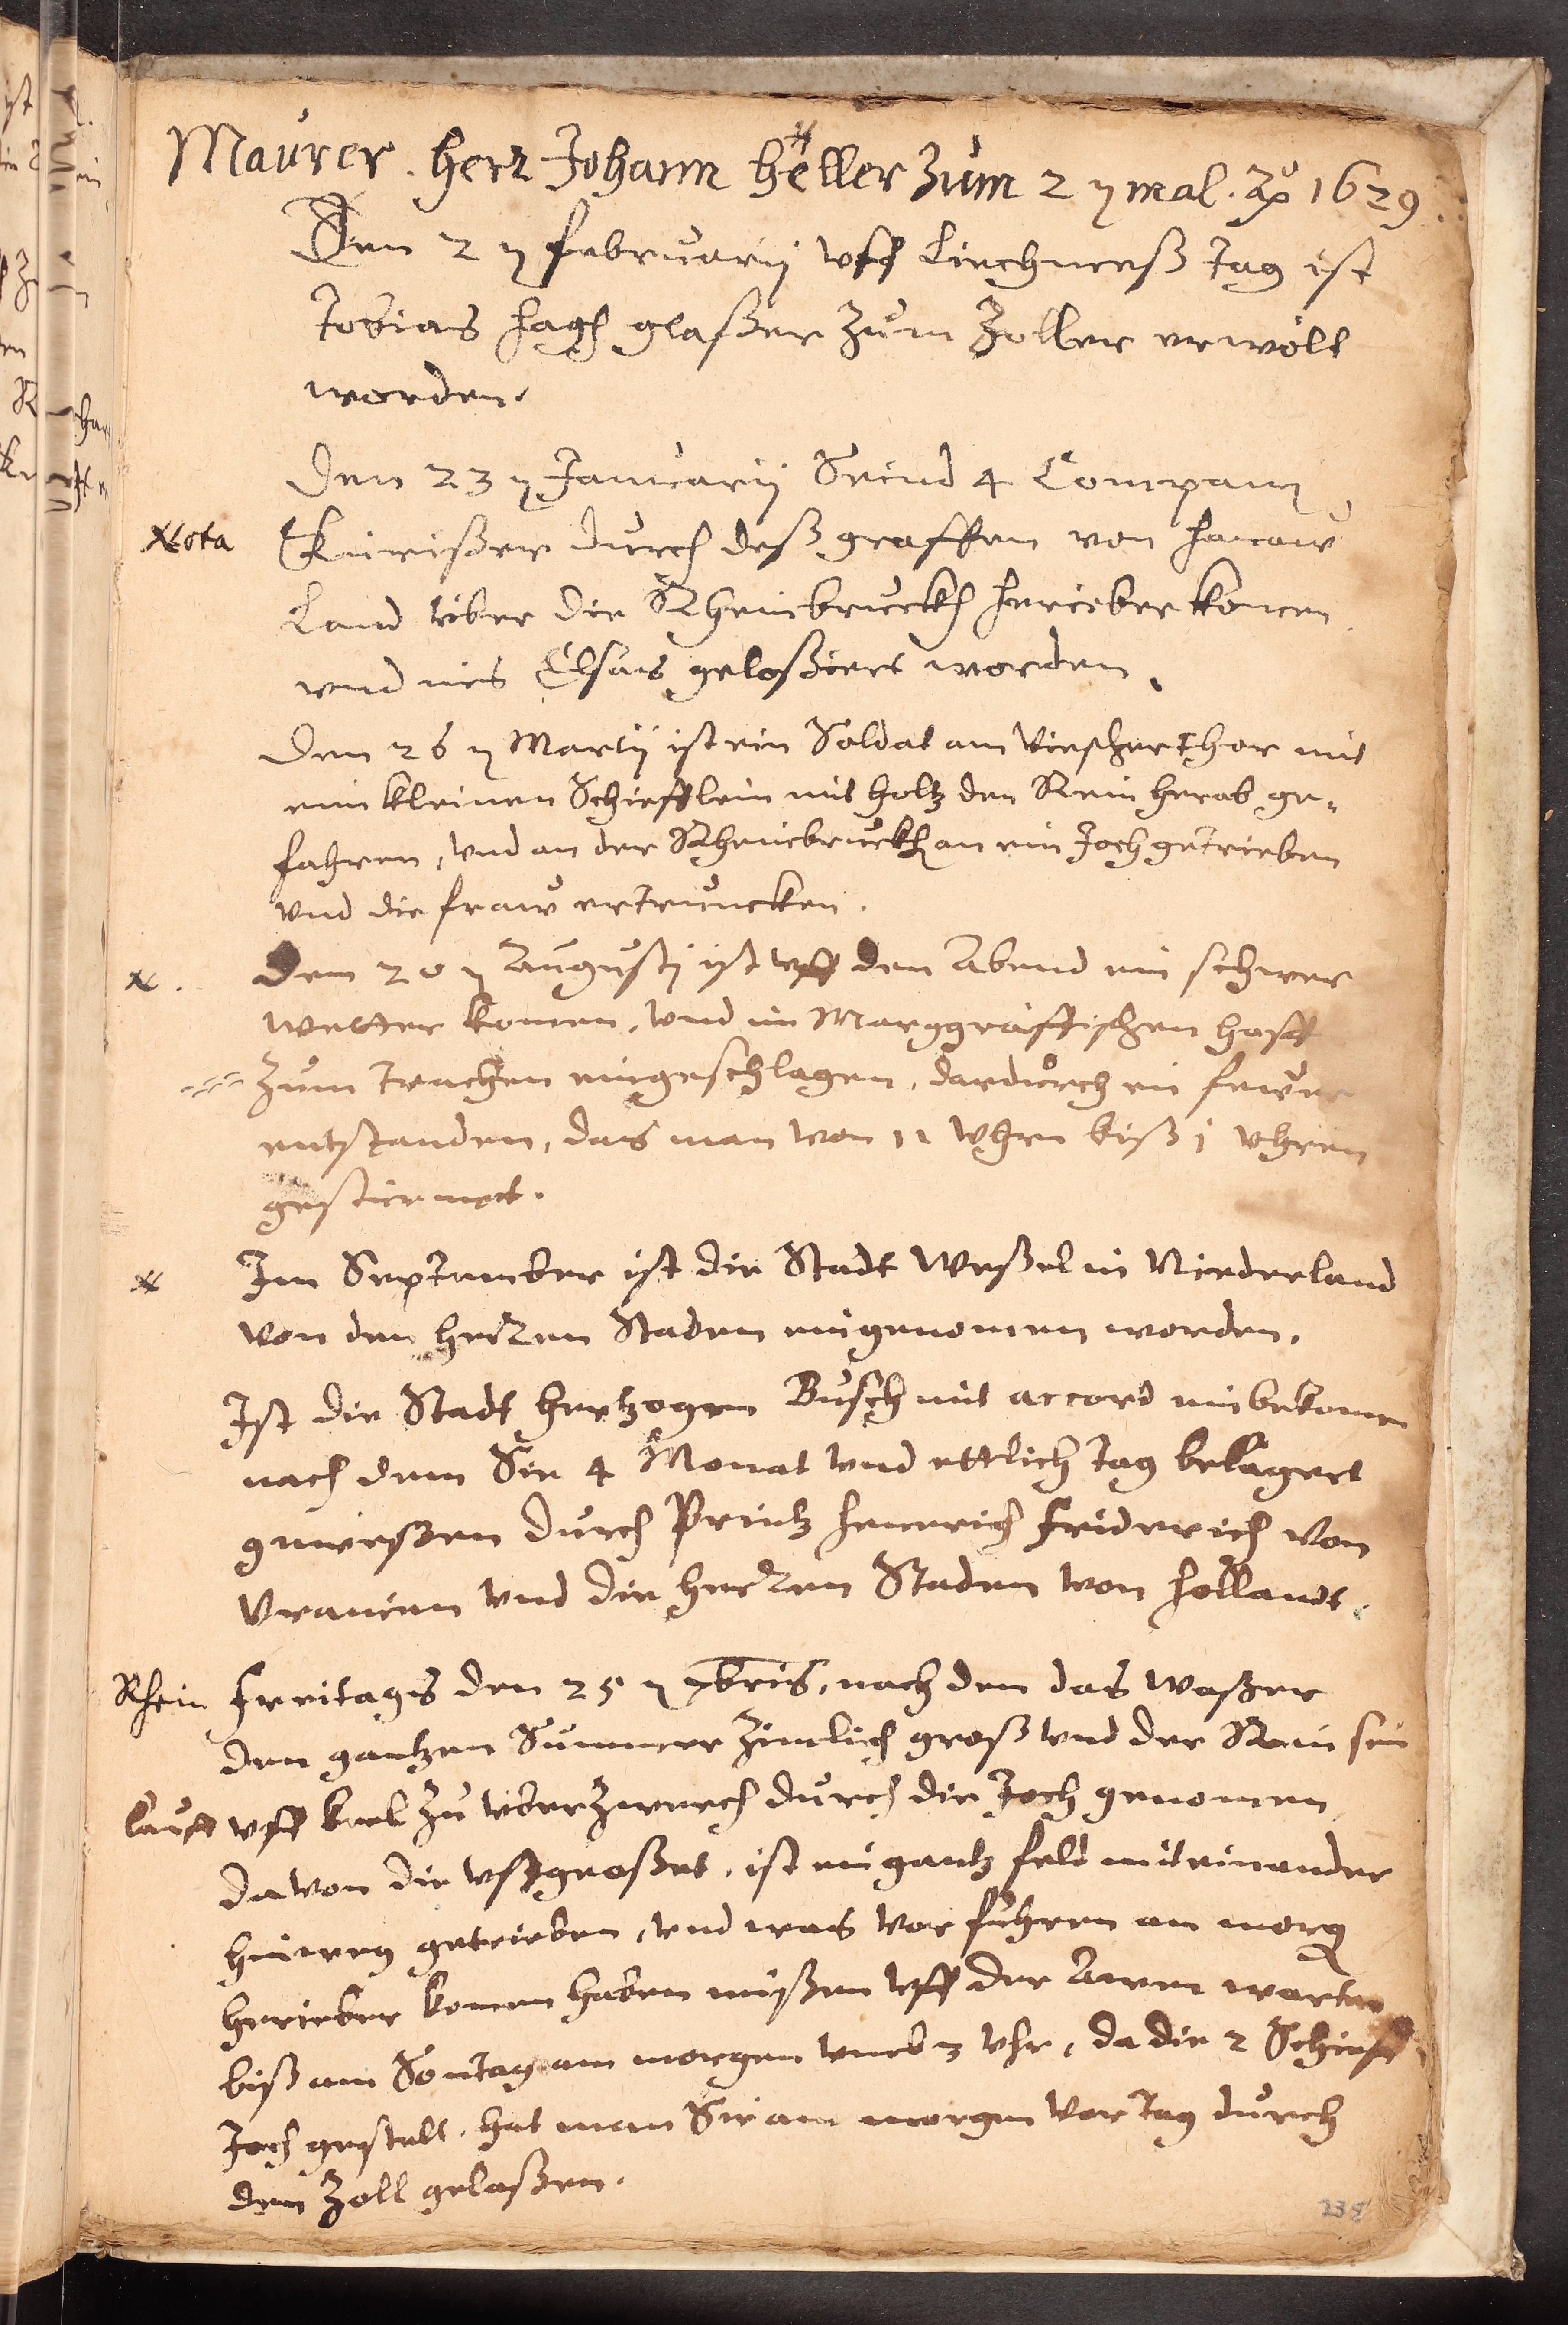 Maurer. herr Johann heller zum 2 n mal. Ao 1629.
Den 2 n februarij vff Liechmeß tag ist
Tobias hag glaßer zum Zoller erwölt
worden.
Den 23 n Januarij Seind 4 Compani
Nota
Kürißer durch deß graffen von hanaw
Land über die Rheinbruckh herieber komen
vnd ins Elsas gelosiert worden.
Den 26 n Martij ist ein Soldat am Viescherthor mit
eim kleinen Schiefflein mit holtz den Rein herab ge-
fahren, vnd an der Rheinbruckh an ein Joch getrieben
vnd die fraw ertruncken.
N.
Dem 20 n Augustj ist vff den Abend ein schwer
wetter komen, vnd im Marggräffischen hoff
zum trachen eingeschlagen, dardurch ein fewer
entstanden, das man von 11 vhren biß 1 vhren
gestürmet.
N
Im September ist die Stadt Weßel in Niederland
von den herren Staden eingenomen worden.
Ist die Stadt hertzogen Busch mit accord einbekomen
nach dem Sie 4 Monat vnd ettlich tag belägert
geweßen durch Printz heinrich friderich von
Vranien vnd die herren Staden von hollandt.
Rhein
freitags den 25 n 7bris, nach dem das waßer
den gantzen Summer zimlich groß vnd der Rein sein
lauff vff keel zu vberzwerch durch die Joch genomen,
davon die vßgroßet, ist ein gantz feld miteinander
hinweg getrieben, vnd was vor fuhren am morg
herieber komen haben müßen vff der Awen warten
biß am Sontag am morgen vmb 3 vhr, da die 2 Schieff
Joch gestelt, hat man Sie am morgen vor tag durch
den Zoll gelaßen.